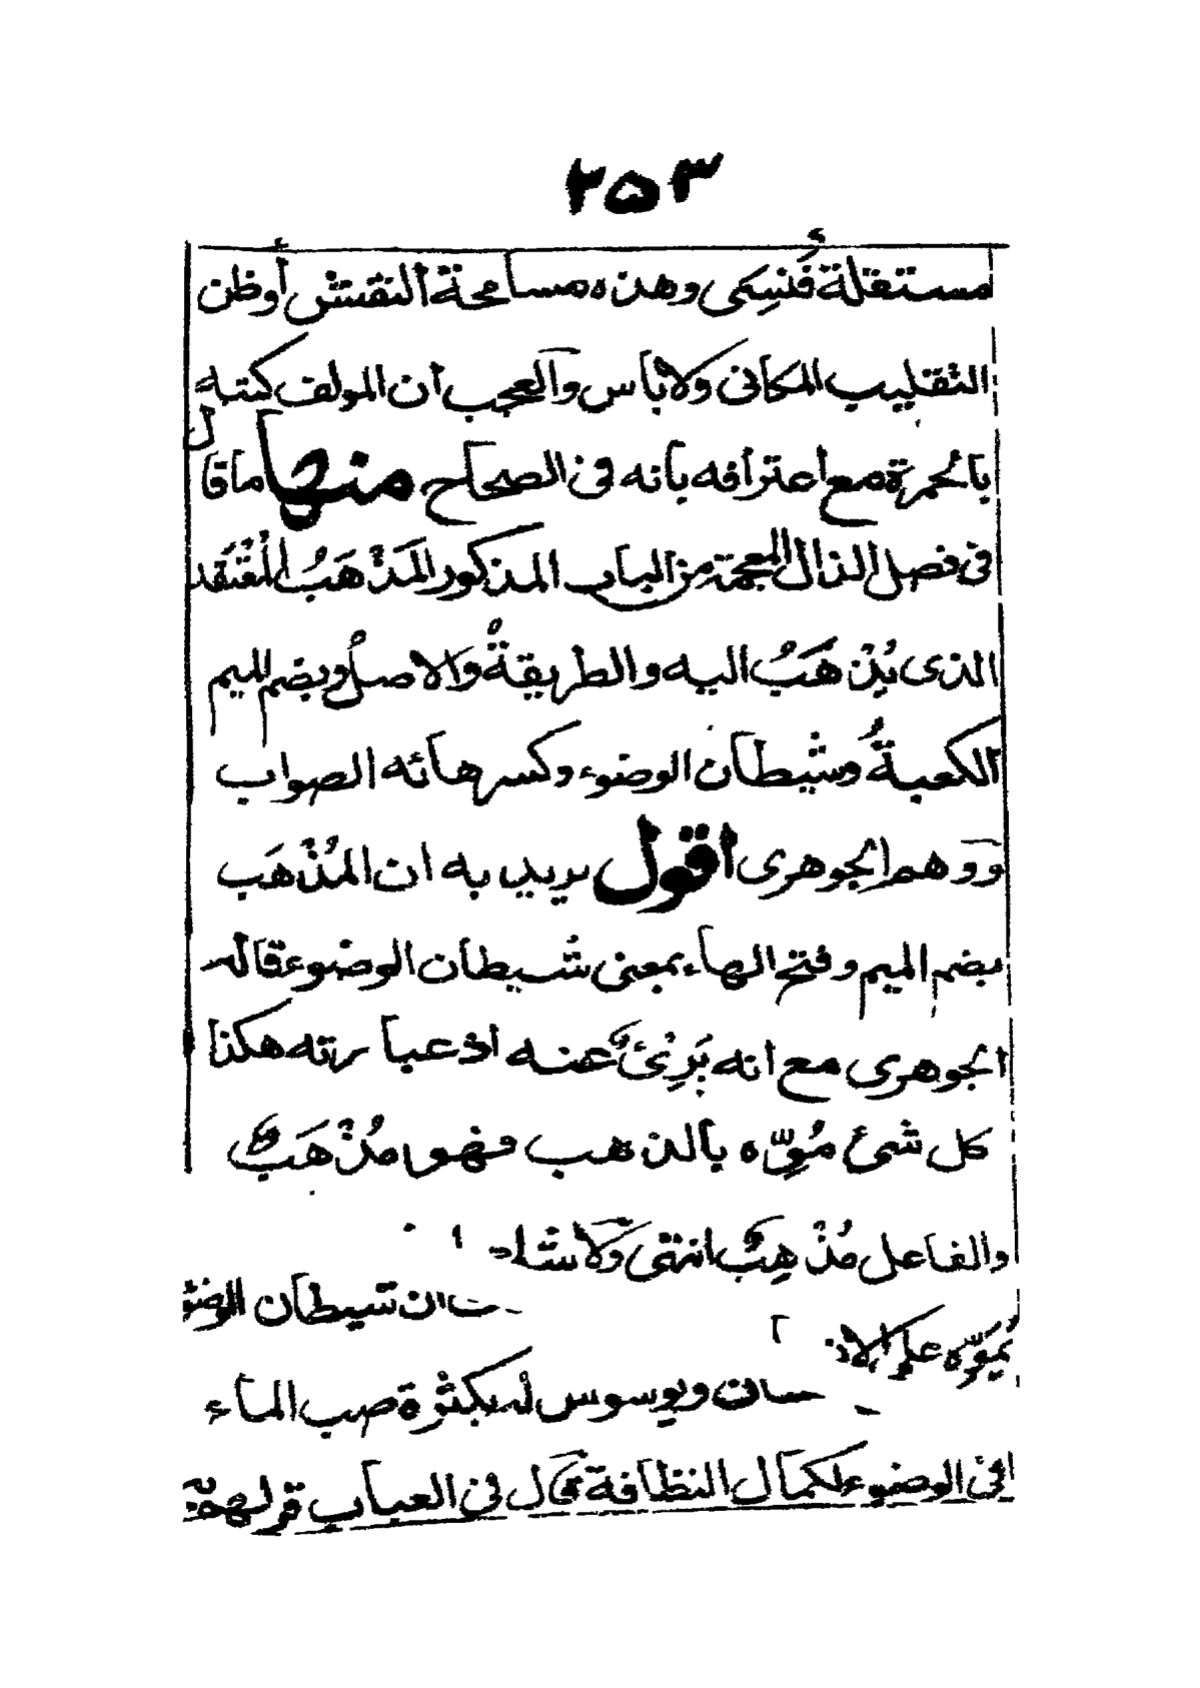 ٢٥٣
مستقلة فنسى وهذه مسامحة النقش أو ظن
التقليب المكانى ولا بأس والعجب أن المولف كتبه
بالحمرة مع اعترافه بأنه فى الصحاح منها ما قال
فى فصل الذال المعجمة من الباب المذكور المَذْهَبُ المُعْتَقَد
الذى يُذْهَبُ اليه والطريقةُ والاصلُ وبضم الميم
الكعبةُ وشيطان الوضوء وكسر هائه الصواب
ووهم الجوهرى اقول يريد به ان المُذْهَب
بضم الميم وفتح الهاء بمعنى شيطان الوضوء قاله
الجوهرى مع انه بَرِئٌ عنه اذ عبارته هكذا
كل شئ مُوِّه بالذهب فهو مُذْهَبٌ
والفاعل مُذْهِبٌ انتهى ولا شك
ان شيطان الوضو
يُمَوِّه على الانسان ويوسوس له بكثرة صب الماء
فى الوضوء لكمال النظافة قال فى العباب قولهم